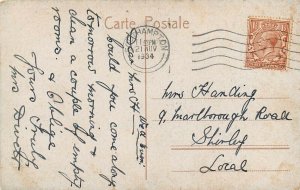 Carte Postale
HAMPTON
21 NOV
1934
Dear Mrs H
Would you come along
tomorrow morning &
clean a couple of empty
rooms & oblige
Yours truly
Mrs
Mrs Harding
9. Marlborough Road
Shirley
Local